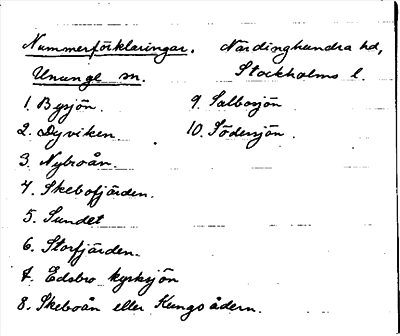 Nummerförklaringar. Närdinghundra hd,
Ununge sn. Stockholms l.
1. Bysjön.
2. Dyviken
3. Nybroån.
4. Skebofjärden.
5. Sundet
6. Storfjärden.
7. Edsbro kyrksjön
8. Skeboån eller Kungsådern.
9. Salbosjön
10. Södersjön.